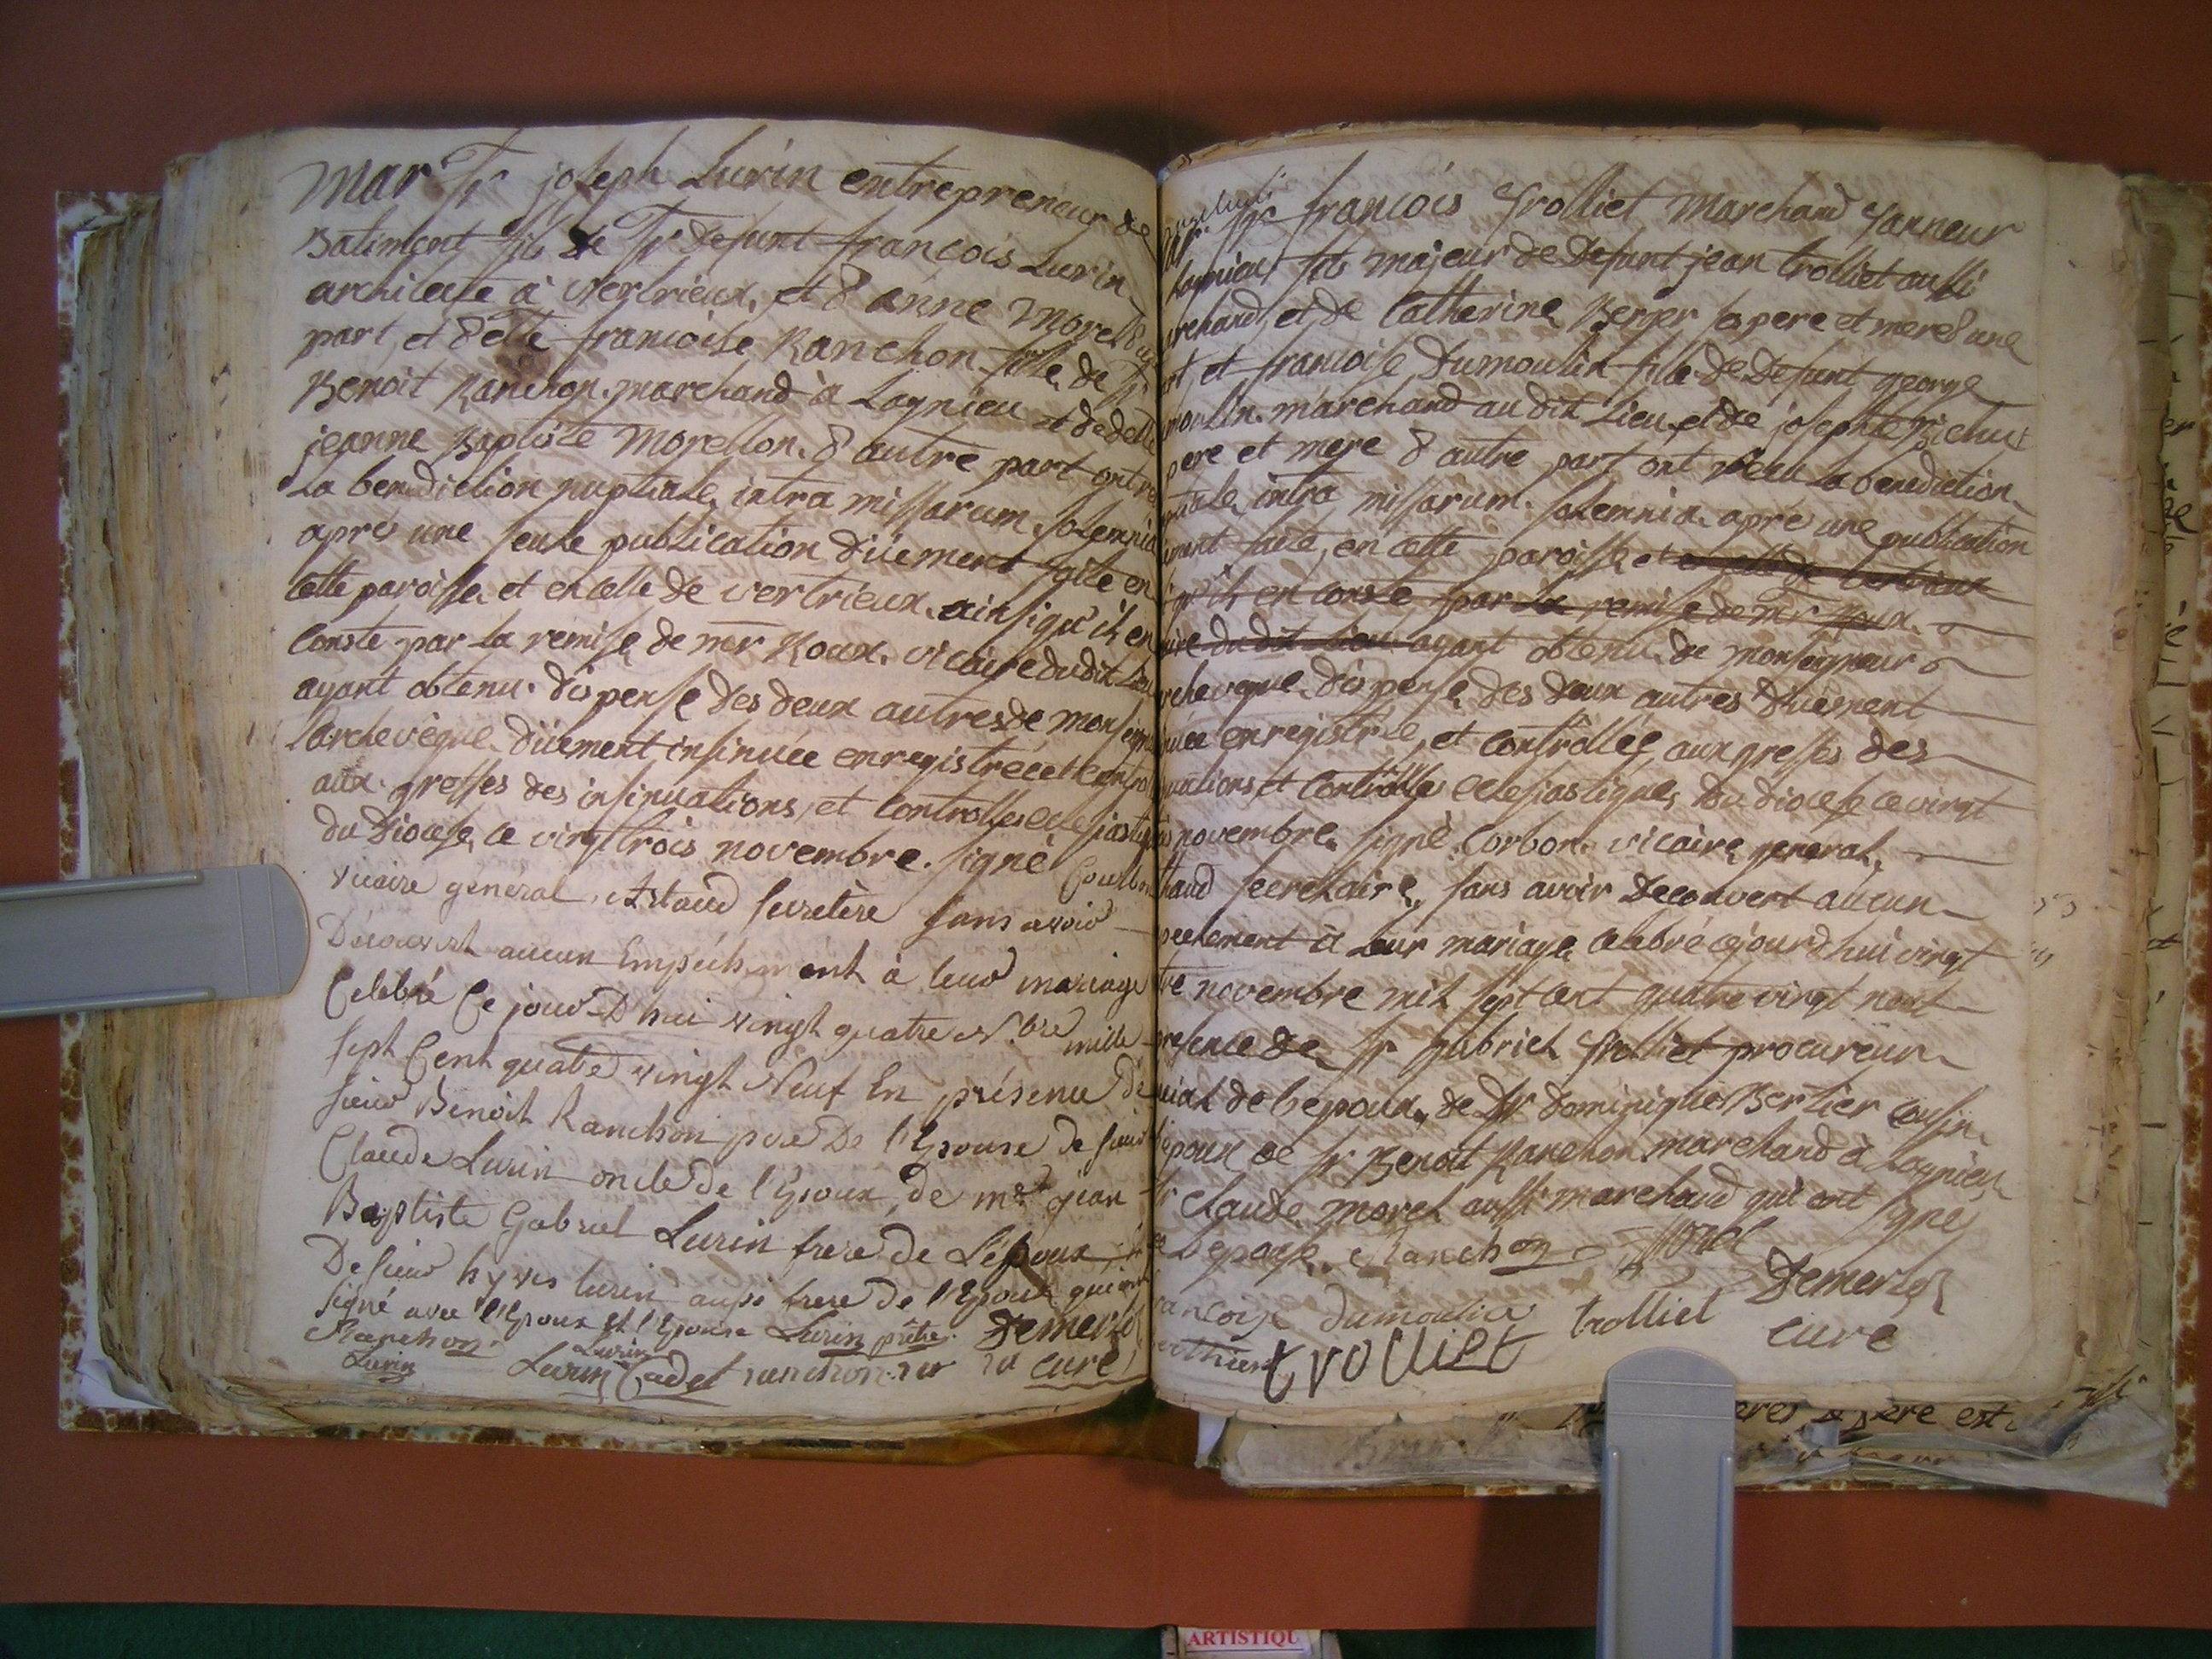 mar Sr joseph Lurin entrepreneur de
Batiment fils de Sr defunt francois Lurin
architecte à vertrieux, et d'anne morel d'une
part, et delle francoise Ranchon fille de Sr
Benoit Ranchon marchand à Lagnieu et de delle
jeanne Baptiste Morellon d'autre part ont re
la benediction nuptiale intra missarum solemnia
apres une seule publication düement faite en
cette paroisse et en celle de vertrieux ainsi qu'il en
conste par la remise de mr Roux vicaire dudit lieu
ayant obtenu dispense des deux autres de monseign
larchevêque düement insinuée enregistrée et contro
aux greffes des insinuations, et controlles eclesiastiq
du Diocese, ce vingt trois novembre. signé Courbon
vicaire général, Astaud secretère sans avoir
Découvert aucun Empéchement à leur mariage
Celébré Ce jourd'hui vingt quatre N.bre mille
sept Cent quatre vingt Neuf En présence de
sieur Benoit Ranchon pere De l'Epouse de sieur
Claude Lurin oncle de l'Epoux, de mre jean
Baptiste Gabriel Lurin frere de L'époux
De sieur hyves lurin aussi frere de l'Epoux qui ont
signé avec l'Epoux et l'Epouse Lurin prêtre Demerloz
Ranchon Lurin
Lurin Lurin Cadet ranchon curé
Sr francois trolliet Marchand tanneur
Lagnieu fils majeur de defunt jean trolliet aussi
rchand, et de Catherine Berger ses pere et mere d'une
rt et francoise Dumoulin fille de defunt george
moulin marchand au dit Lieu et de josephte Michut
pere et mere d'autre part ont recu la benediction
ptiale intra missarum solemnia apres une publication
ment faite, en cette paroisse et en celle de vertrieux
qu'il en conste par la remise de mr Roux
ire du dit lieu ayant obtenu de monseigneur
rcheveque dispense des deux autres düement
nuée enregistrée, et controllée aux greffes des
nuations et controlles eclesiastiques du diocese ce vingt
novembre signé Corbon vicaire general,
taud secretaire, sans avoir decouvert aucun
pechement à leur mariage celebré cejourd'hui vingt
tre novembre mil sept cent quatre vingt neuf
presence de Sr gabriel trolliet procureur
cial de l'epoux, de Sr dominique Bertier cousin
epoux de Sr Benoit Ranchon marchand à Lagnieu
Sr claude morel aussi marchand qui ont signé
L'epouse Ranchon Morel
Demerloz
rancoise dumoulin trolliet curé
erthier trolliet
eres pere est
ARTISTIQU